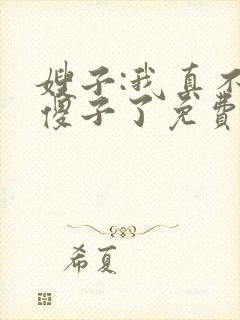 嫂子:我真不
傻子了免费
希夏